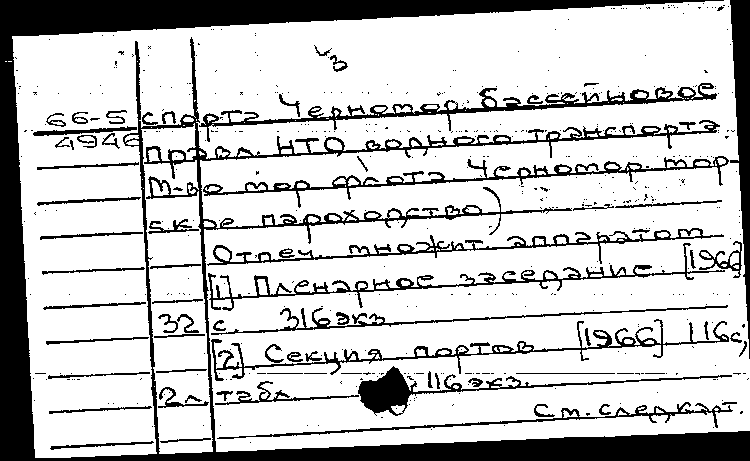 3
66-5 спорта Черномор. бассейновое
4946 правл. НТО водного транспорта
М-во мор флота. Черномор. мор-
ское пароходство)
Отпеч. множит. аппаратом
[1]. Пленарное заседание. [1966]
32 с. 316экз
[2]. Секция портов [1966] 116с;
2л. табл. 116экз.
См. след карт.